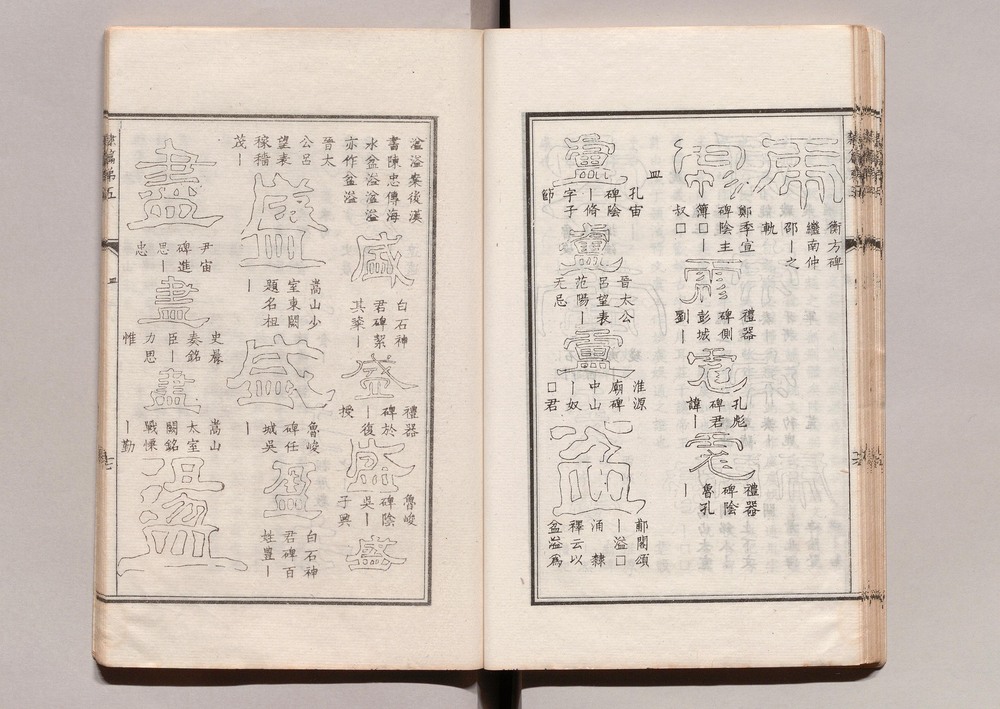 衡方碑
繼南仲
邵｜之
軌
鄭季宣
碑陰主
簿□｜
叔□
禮器
碑側
彭城
劉｜
孔彪
碑君
諱｜
禮器
碑陰
魯孔
｜
皿
盧
孔宙
碑陰
｜脩
字子
節
盧
晉太公
呂望表
范陽｜
无忌
盧
淮源
廟碑
中山
｜奴
□君
盆
郙閣頌
｜溢□
涌　隸
釋云以
盆溢為
溢溢案後漢
書陳忠傳海
水盆溢溢溢
亦作盆溢
盛
白石神
君碑絜
其粢｜
盛
禮器
碑於
｜復
授
盛
魯峻
碑陰
吳｜
子興
盛
晉太
公呂
望表
稼穡
茂｜
盛
嵩山少
室東闕
題名祖
｜
盛
魯峻
碑任
城吳
｜
盈
白石神
君碑百
姓豐｜
盡
尹宙
碑進
思｜
忠
盡
史晨
奏銘
臣｜
力思
惟
盡
嵩山
太室
闕銘
戰慄
｜勤
盪